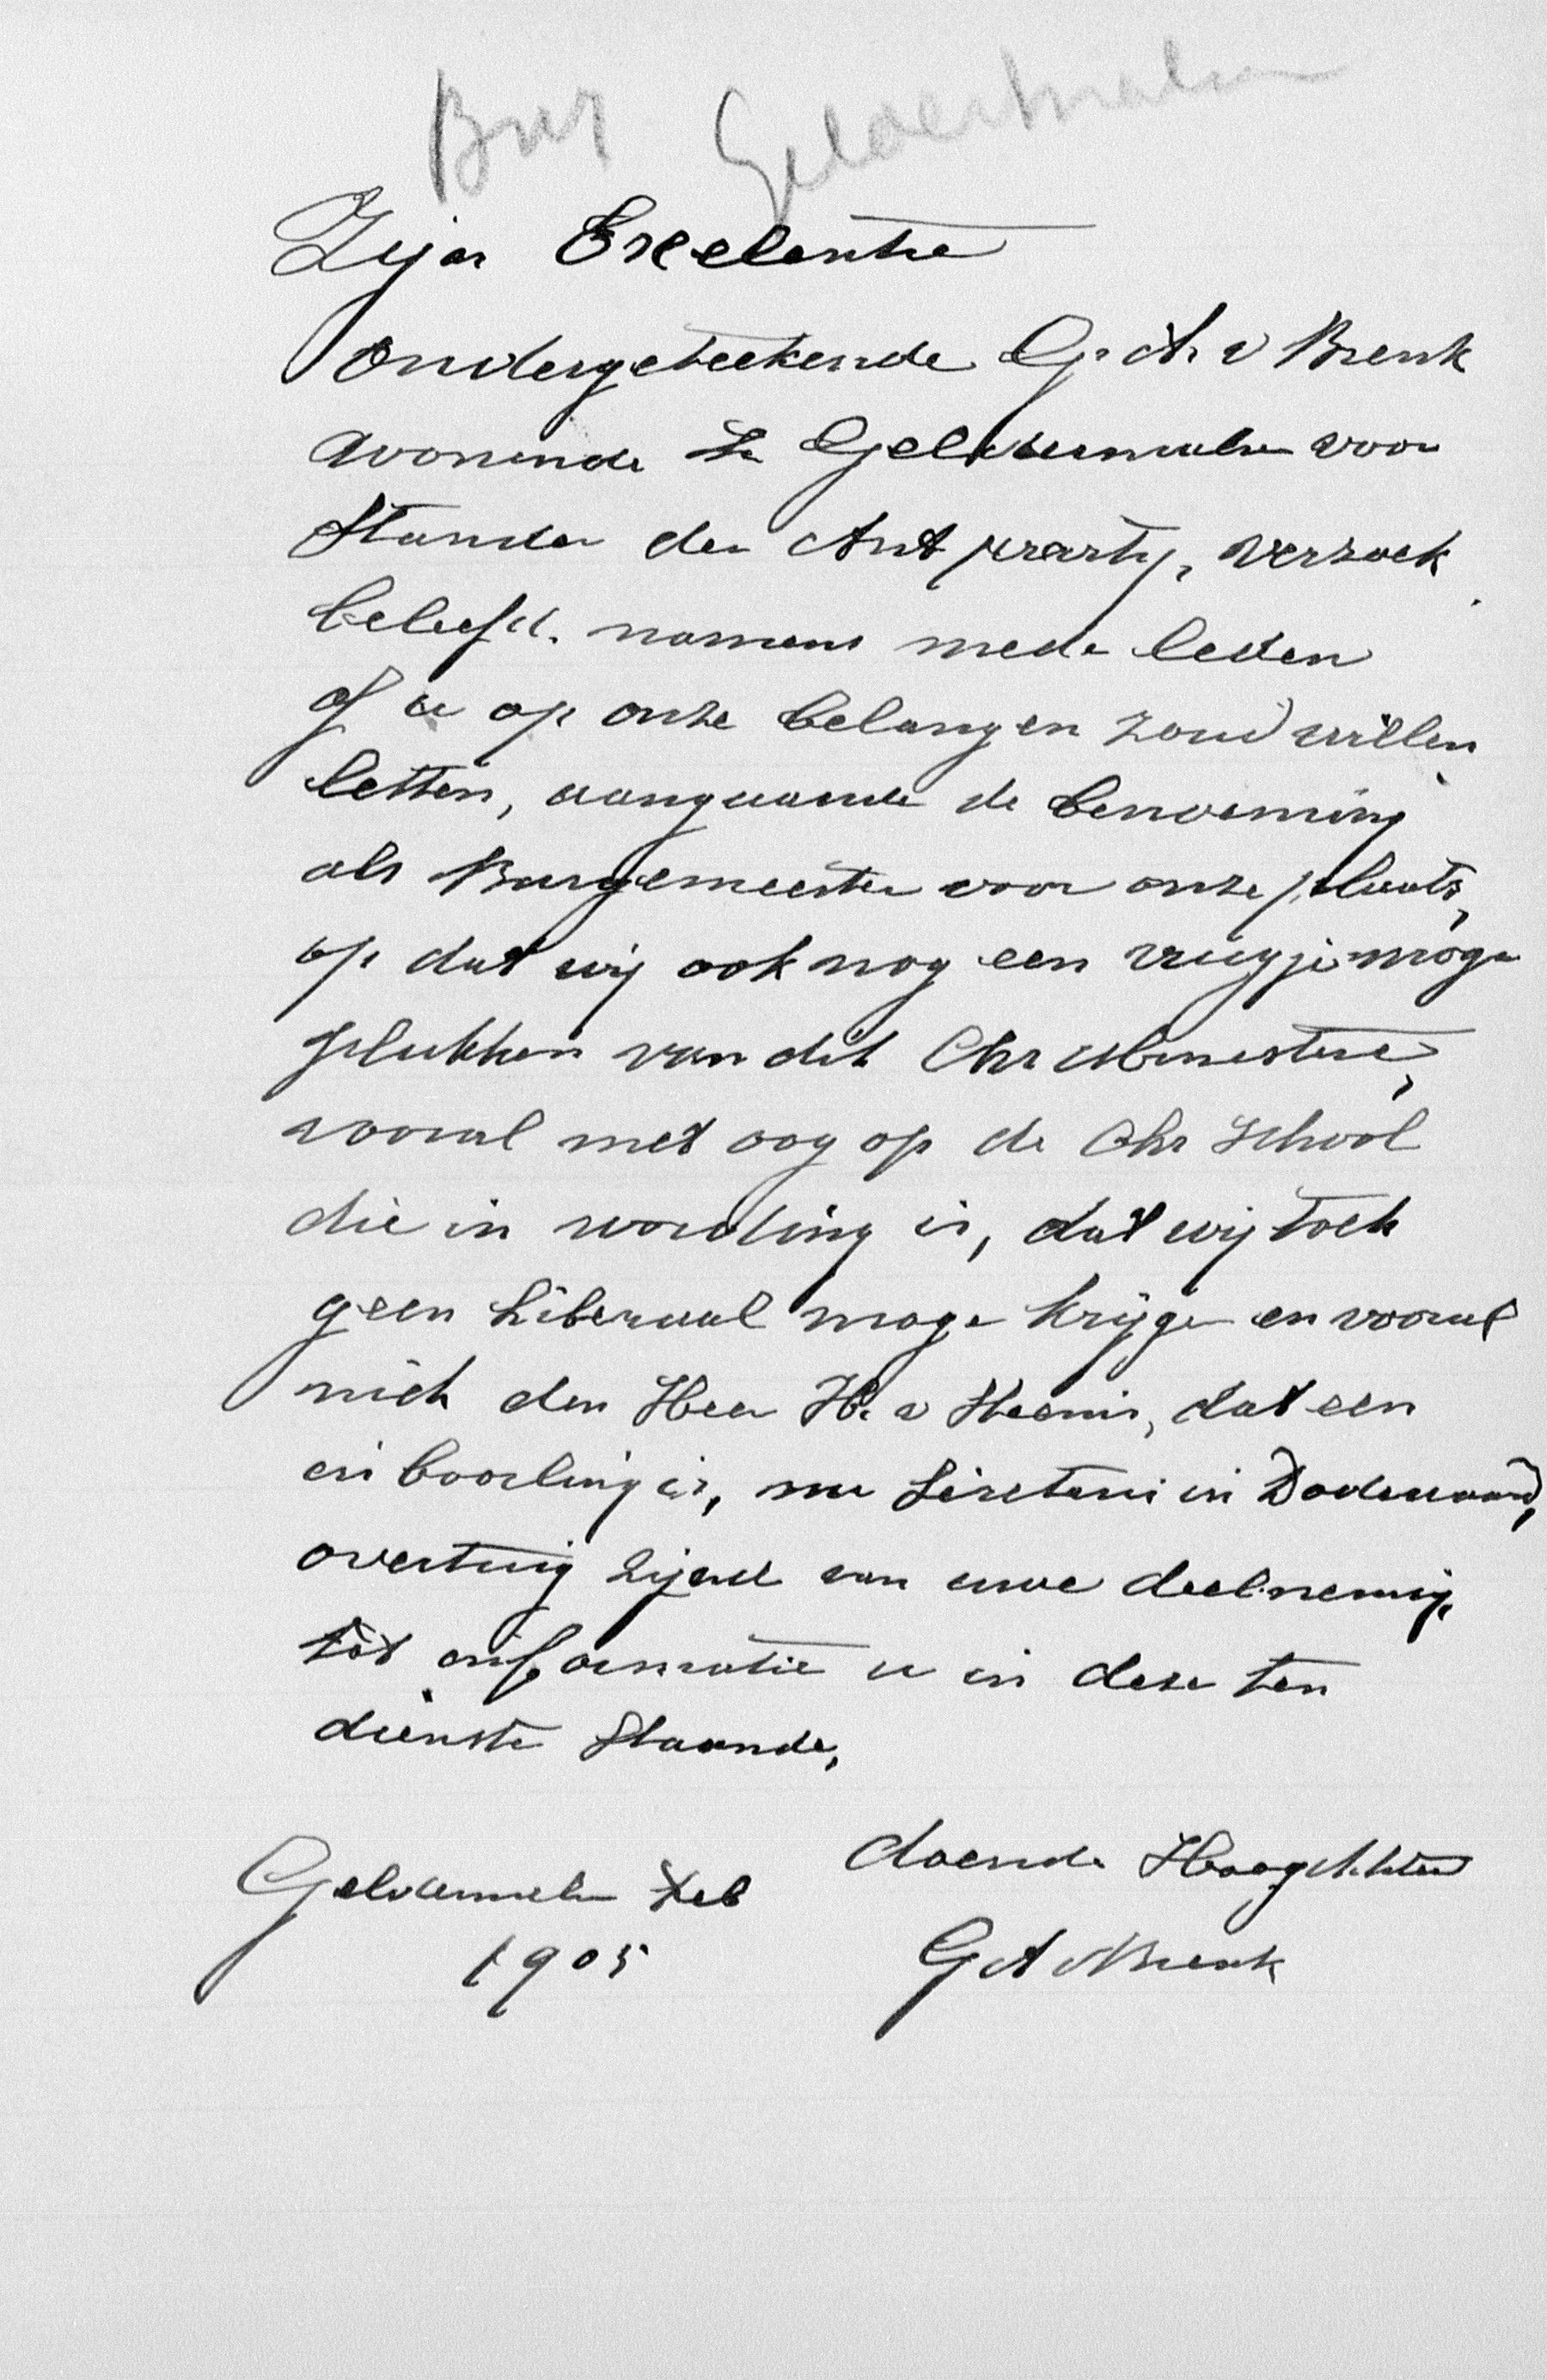 Bur Geldermalsen
Zijn Excelentie
Ondergeteekende G. A. v Brenk
wonende te Geldermalsen voor
stander der Ant partij, verzoek
beleefd. namens mede leden
of u op onze belangen zoud willen
letten, aangaande de benoeming
als Burgemeester voor onze plaats,
op dat wij ook nog een vrugje moge
plukken van dit Chr Ministerie,
vooral met oog op de Chr School
die in wording is, dat wij toch
geen Liberaal moge krijge en vooral
niet den Heer H. v
dat een
in boorling is, nu in Dodewaard,
overtuig zijend van uwe deelneming,
tot informatie u in deze ten
dienste staande,
doende Hoogachtend
Geldermalsen Feb
1905
G A v Brenk